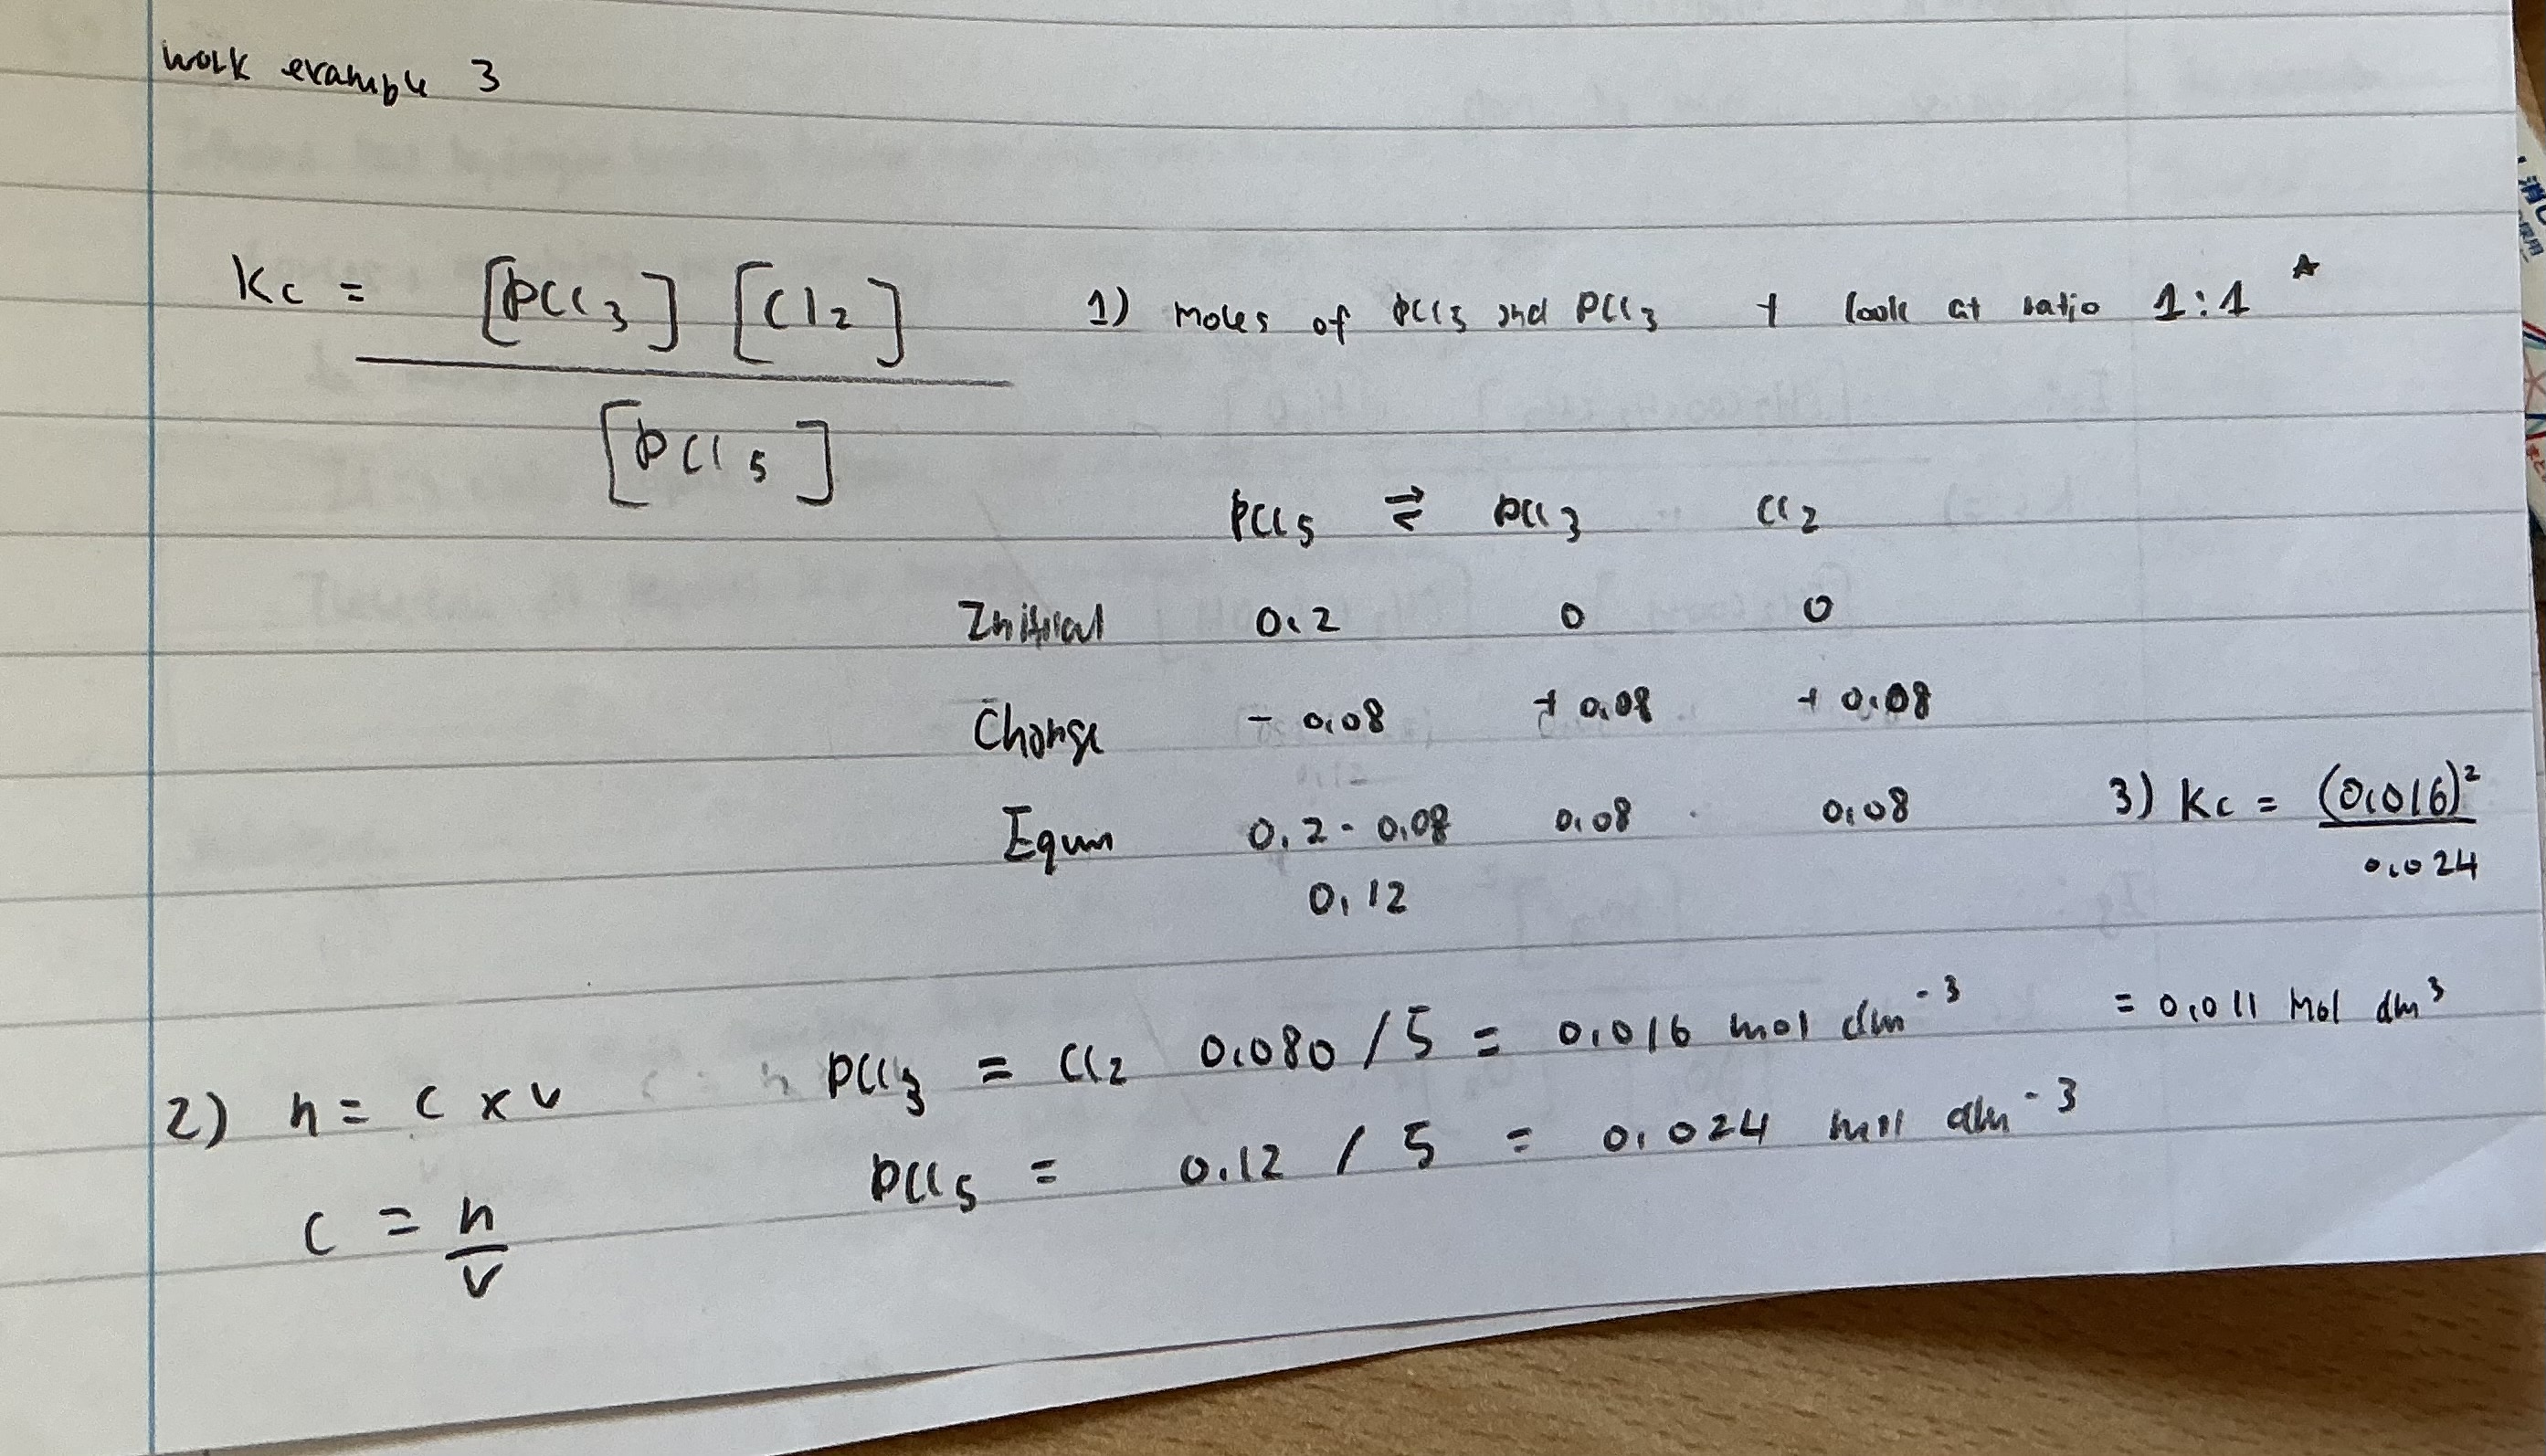 work example 3
Kc = [PCl3] [Cl2]
[PCl5]
1) moles of PCl5 and PCl3 + look at ratio 1:1 *
PCl5 ⇌ PCl3 Cl2
Initial 0.2 0 0
Change - 0.08 + 0.08 + 0.08
Equm 0.2 - 0.08 0.08 0.08
0.12
3) Kc = (0.016)²
0.024
= 0.011 mol dm³
2) n = c x v PCl3 = Cl2 0.080 / 5 = 0.016 mol dm⁻³
PCl5 = 0.12 / 5 = 0.024 mol dm⁻³
c = n
v